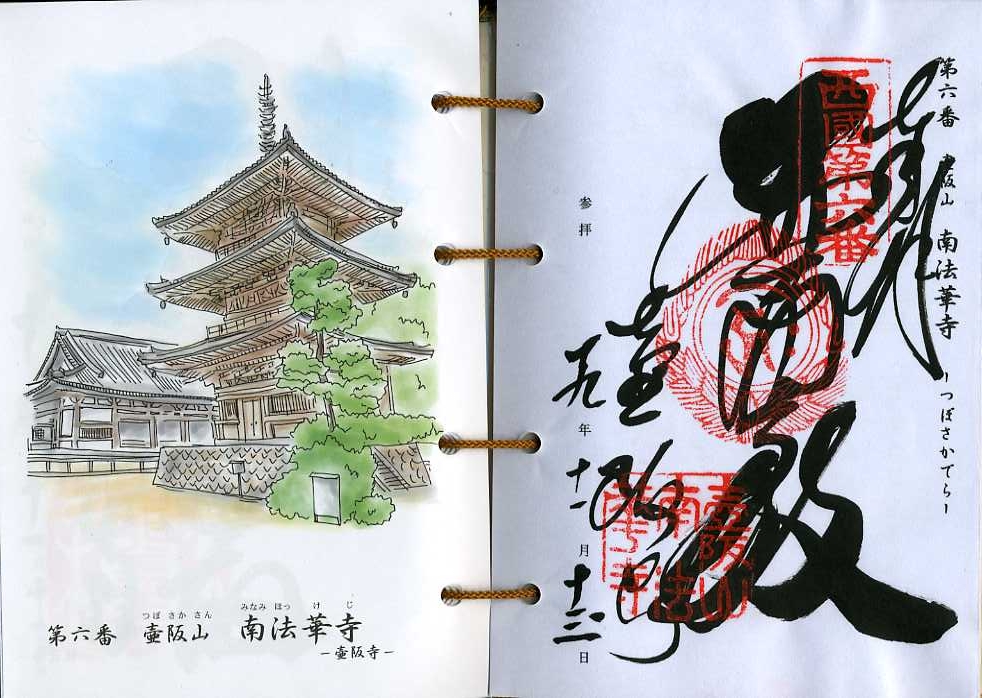 つぼ さか さん みなみ ほっ け じ
第六番 壷阪山 南法華寺
−壷阪寺−
第六番 壷阪山 南法華寺 −つぼさかでら−
西國第六番
奉拝
殿
壷阪山
南法
華寺
壷阪寺
参拝
年 十一月 日